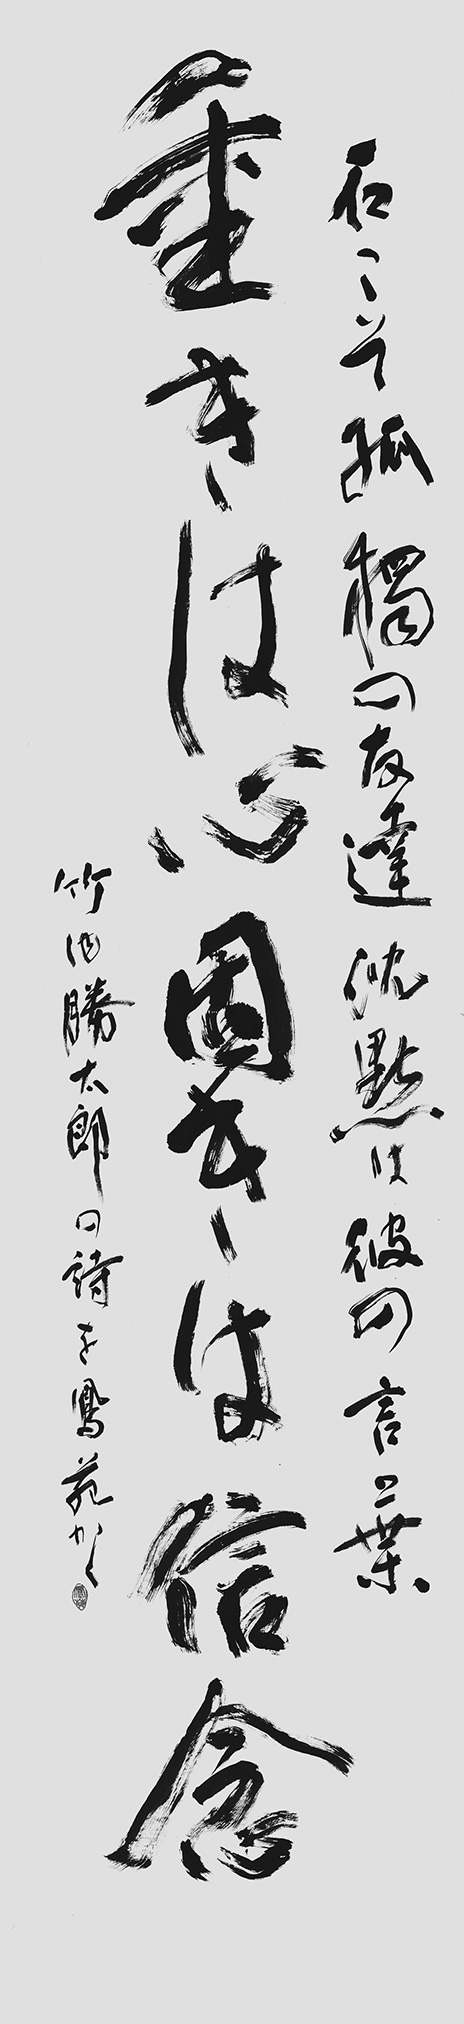 石こそ孤獨の友達沈黙は彼の言葉
重きは心固きは信念
竹内勝太郎の詩を鳳苑かく